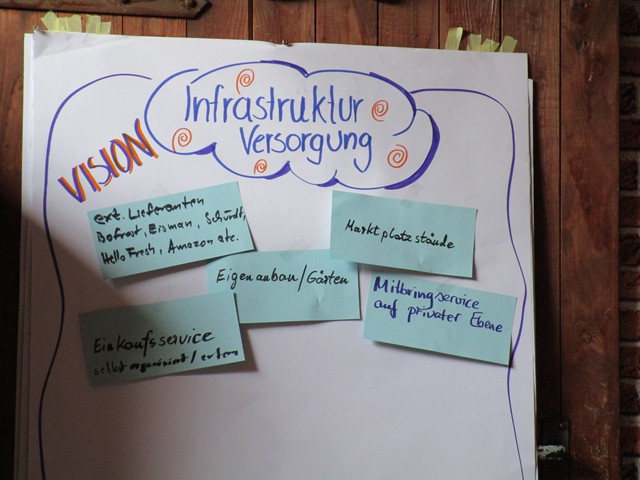 Infrastruktur
Versorgung
VISION
ext. Lieferanten
Bofrost, Eisman,
HelloFresh, Amazon etc.
Marktplatzstände
Eigenanbau/Gärten
Mitbringservice
auf privater Ebene
Einkaufsservice
selbst organisiert/extern